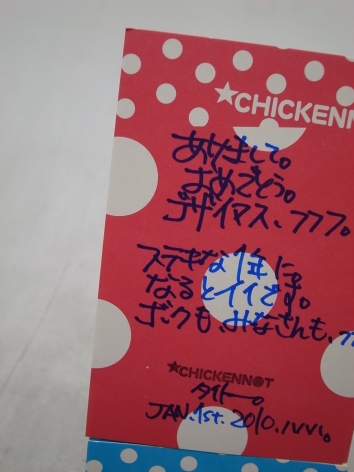 ★CHICKENNOT
あけまして。
おめでとう。
ゴザイマス、フフフ。
ステキな1年に。
なるとイイです。
ボクも、みなさんも、
★CHICKENNOT
タイトー。
JAN.1st.2010.